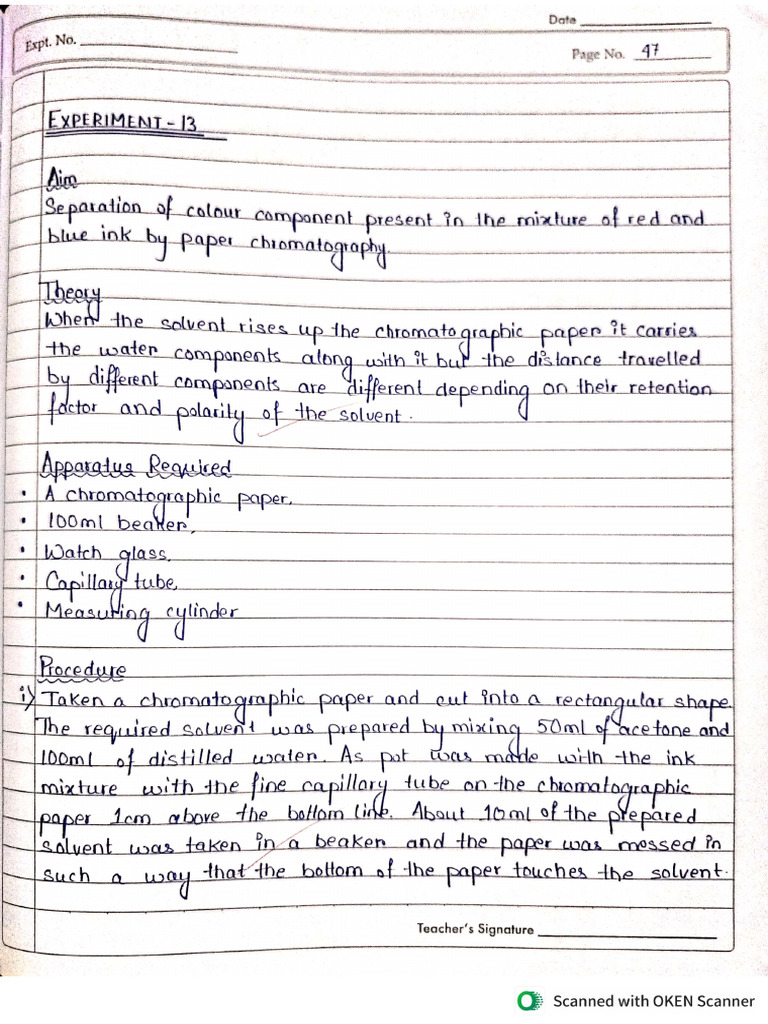 Date
Expt. No.
Page No. 47
EXPERIMENT - 13
Aim
Separation of colour component present in the mixture of red and
blue ink by paper chromatography.
Theory
When the solvent rises up the chromatographic paper it carries
the water components along with it but the distance travelled
by different components are different depending on their retention
factor and polarity of the solvent.
Apparatus Required
• A chromatographic paper,
• 100ml beaker,
• Watch glass,
• Capillary tube,
• Measuring cylinder
Procedure
i) Taken a chromatographic paper and cut into a rectangular shape.
The required solvent was prepared by mixing 50ml of acetone and
100ml of distilled water. As pot was made with the ink
mixture with the fine capillary tube on the chromatographic
paper 1cm above the bottom line. About 10ml of the prepared
solvent was taken in a beaker and the paper was messed in
such a way that the bottom of the paper touches the solvent.
Teacher's Signature
Scanned with OKEN Scanner